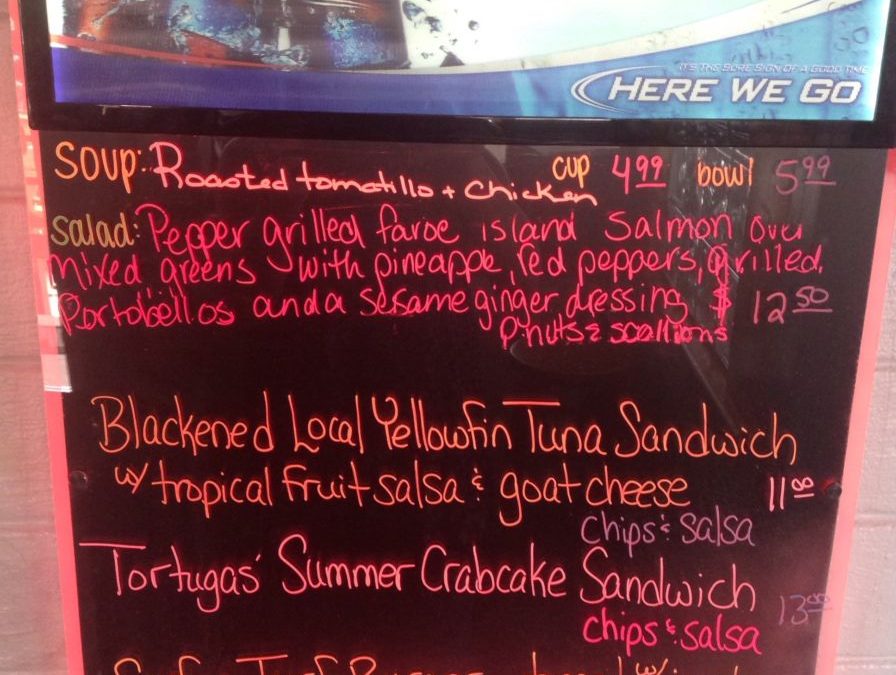 IT'S THE SURE SIGN OF A GOOD TIME
HERE WE GO
Soup: Roasted tomatillo + Chicken cup 4.99 bowl 5.99
Salad: Pepper grilled faroe island Salmon over
Mixed greens with pineapple, red peppers, grilled
Portobellos and a sesame ginger dressing $ 12.50
P-nuts & scallions
Blackened Local Yellowfin Tuna Sandwich
w/ tropical fruit salsa & goat cheese 11.00
chips & salsa
Tortugas' Summer Crabcake Sandwich 13.00
chips & salsa